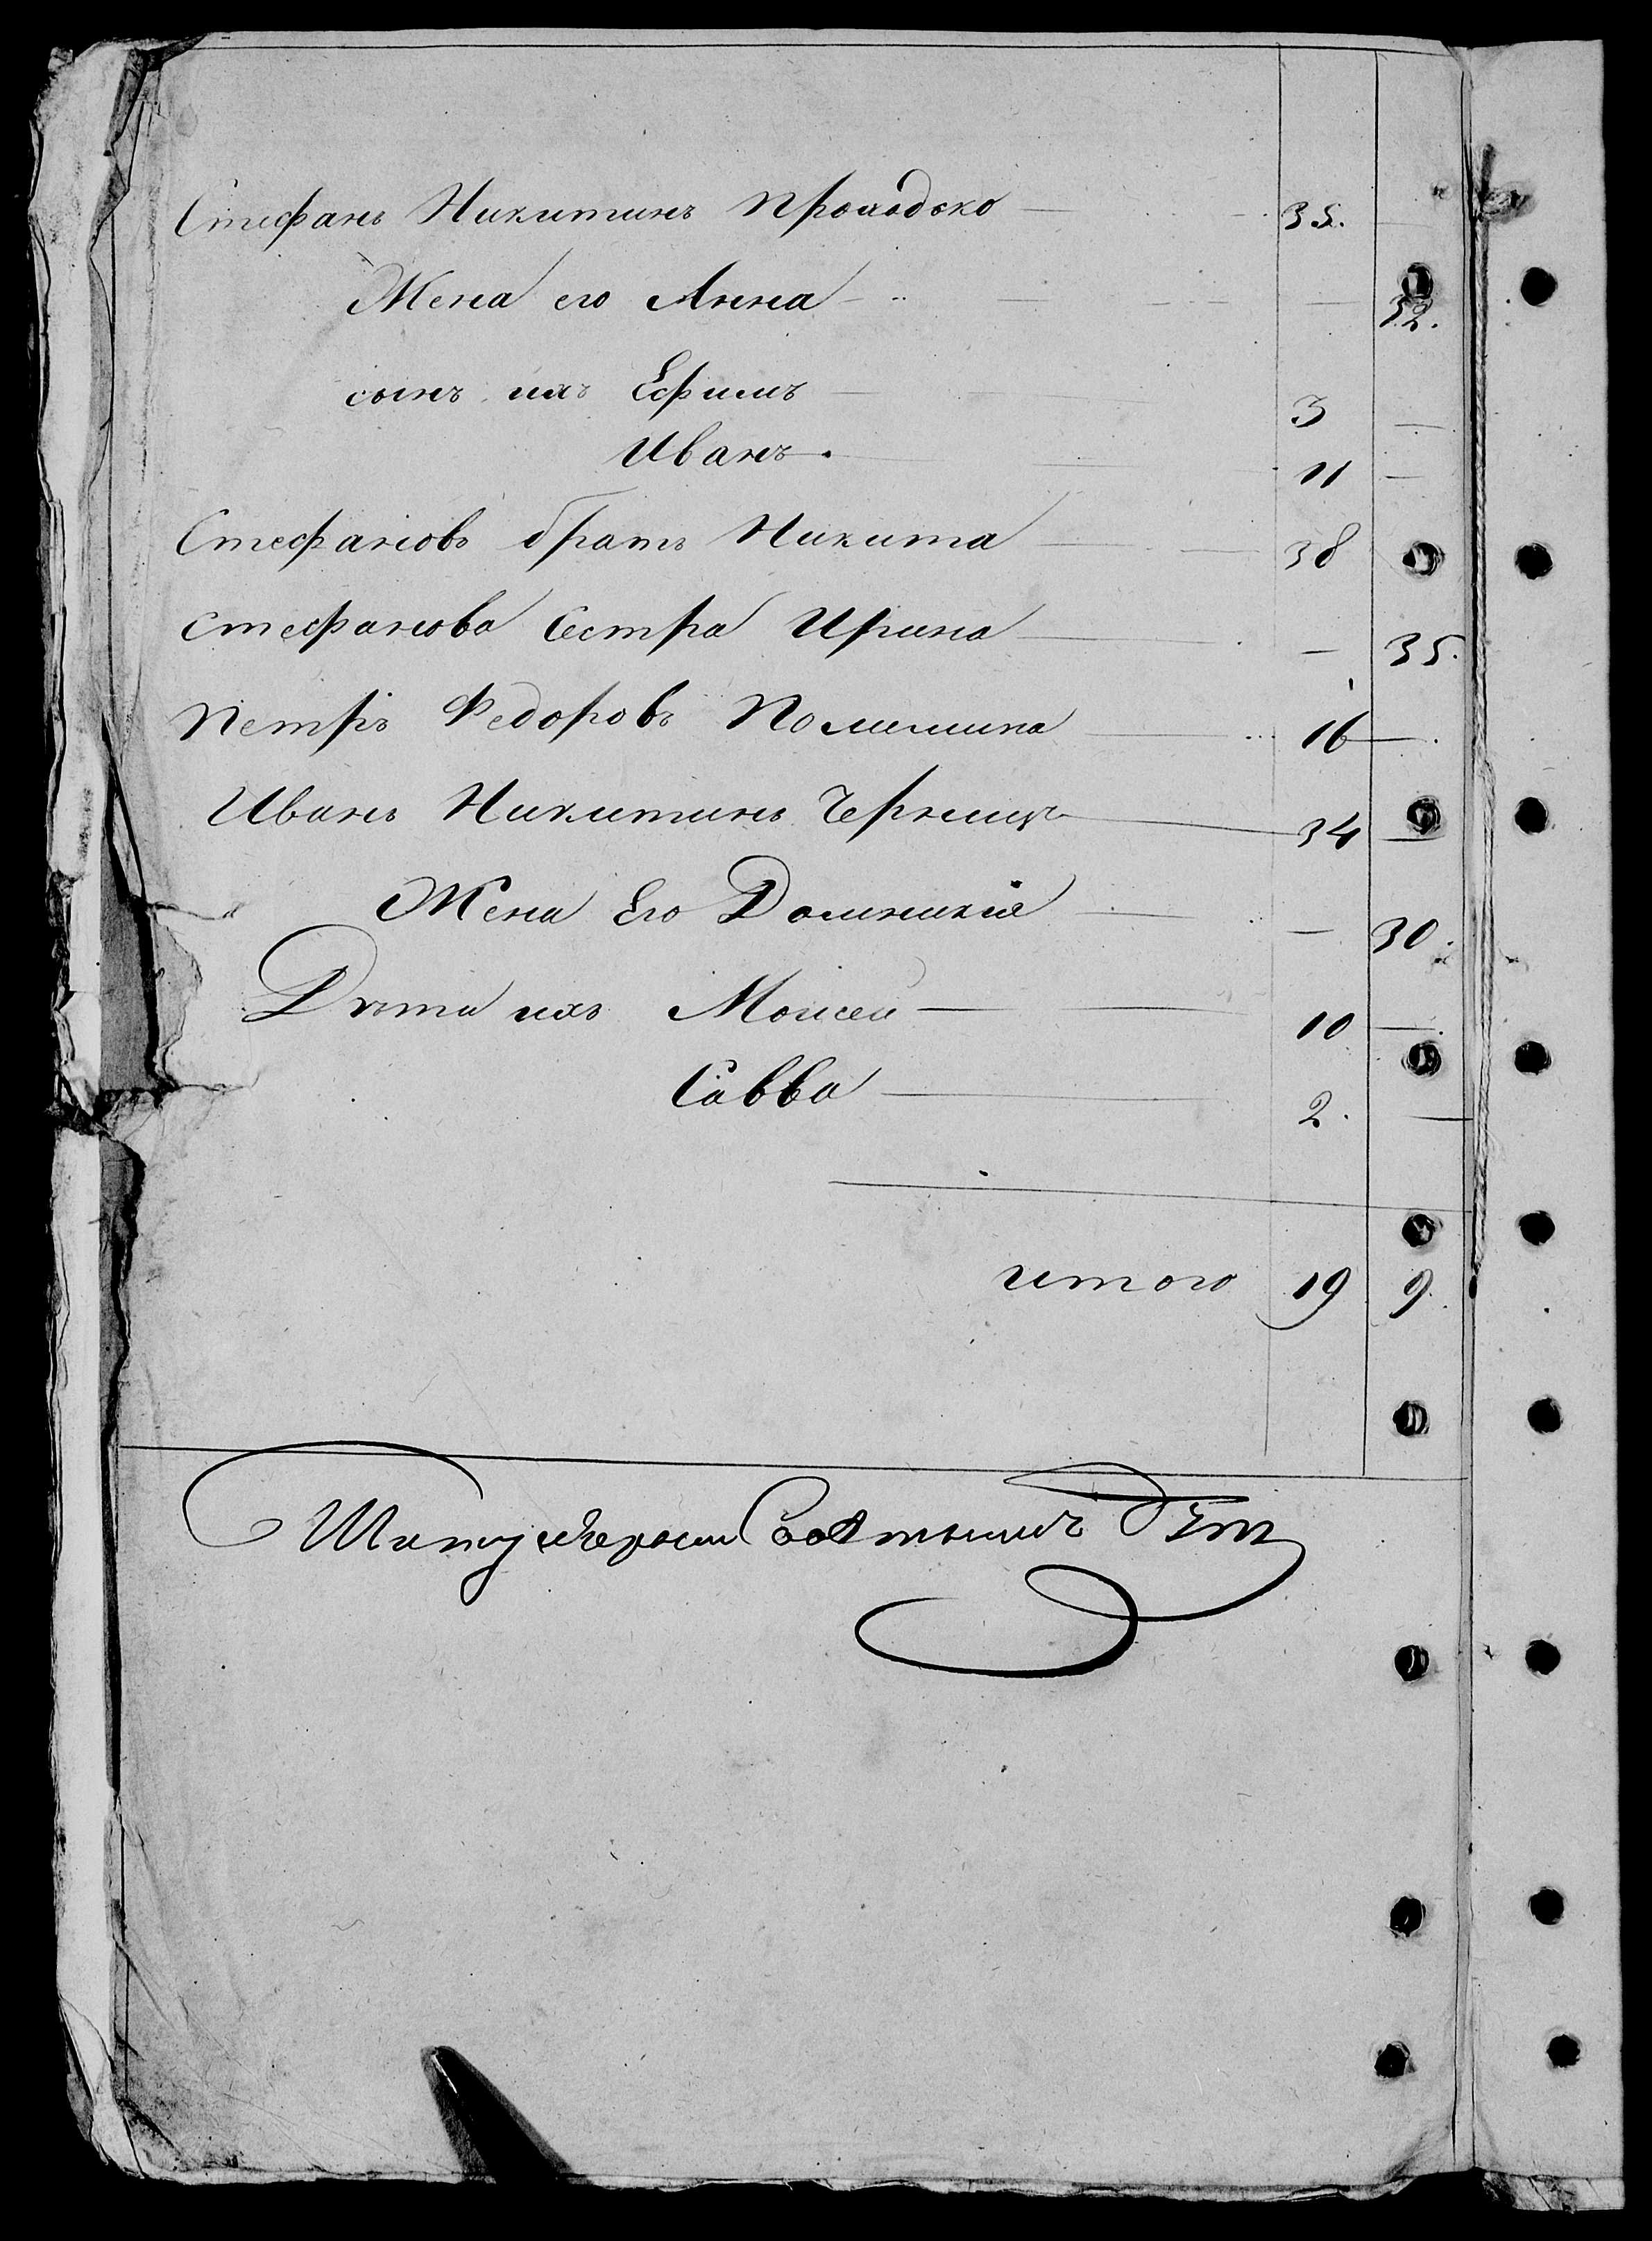 Стефанъ Никитинъ Проходько 35.
Жена его Анна 32.
сынъ ихъ Ефимъ 3
Иванъ 11
Стефановъ братъ Никита 38
стефанова Сестра Ирина 35.
Петръ Федоровъ 16
Иванъ Никитинъ Чернецъ 34
Жена Его Домникія 30.
Дѣти ихъ Моисей 10
Савва 2.
итого 19 9